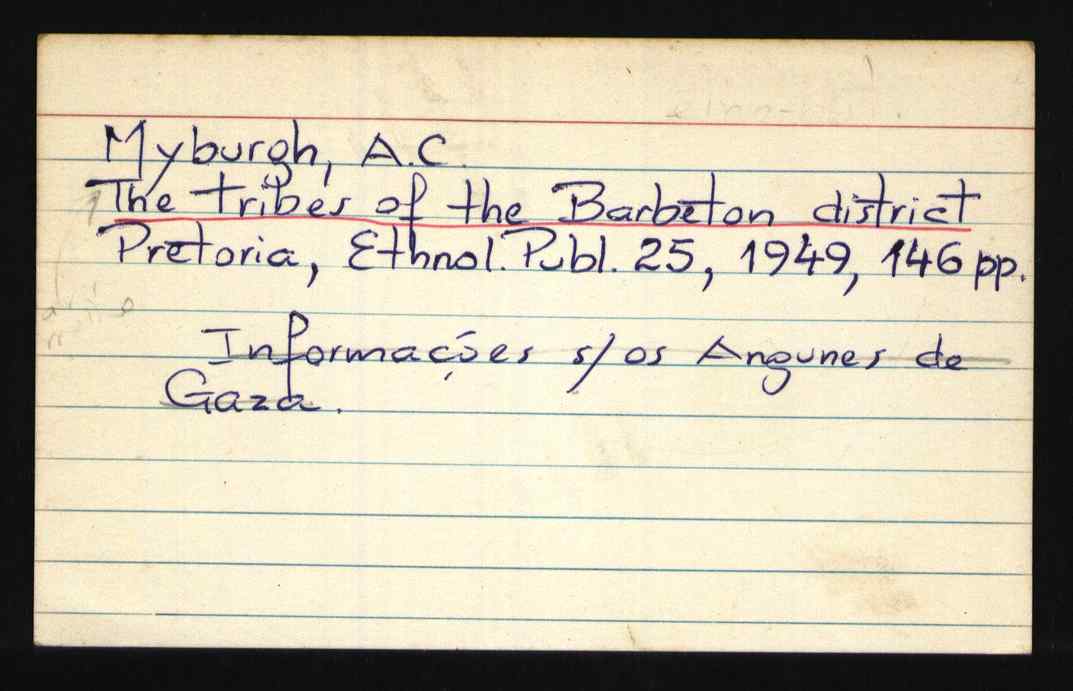 Myburgh, A.C.
The tribes of the Barbeton district
Pretoria, Ethnol. Publ. 25, 1949, 146 pp.
Informações s/ os Angunes de
Gaza.